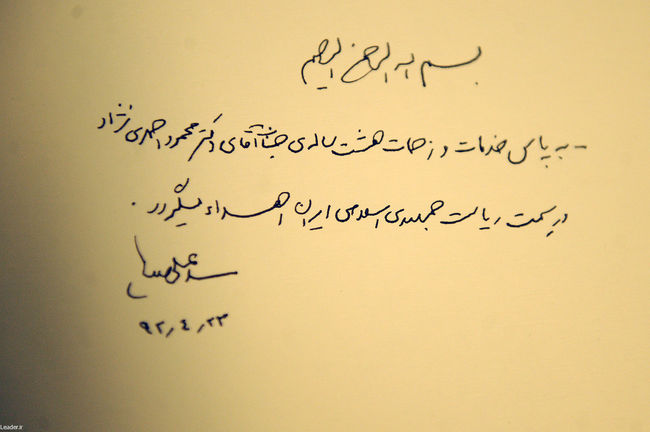 بسم الله الرحمن الرحیم
- به پاس خدمات و زحمات هشت ساله‌ی جناب آقای دکتر محمود احمدی نژاد
در سمت ریاست جمهوری اسلامی ایران اهداء میگردد.
سید علی
۹۲٫۴٫۲۳
Leader.ir